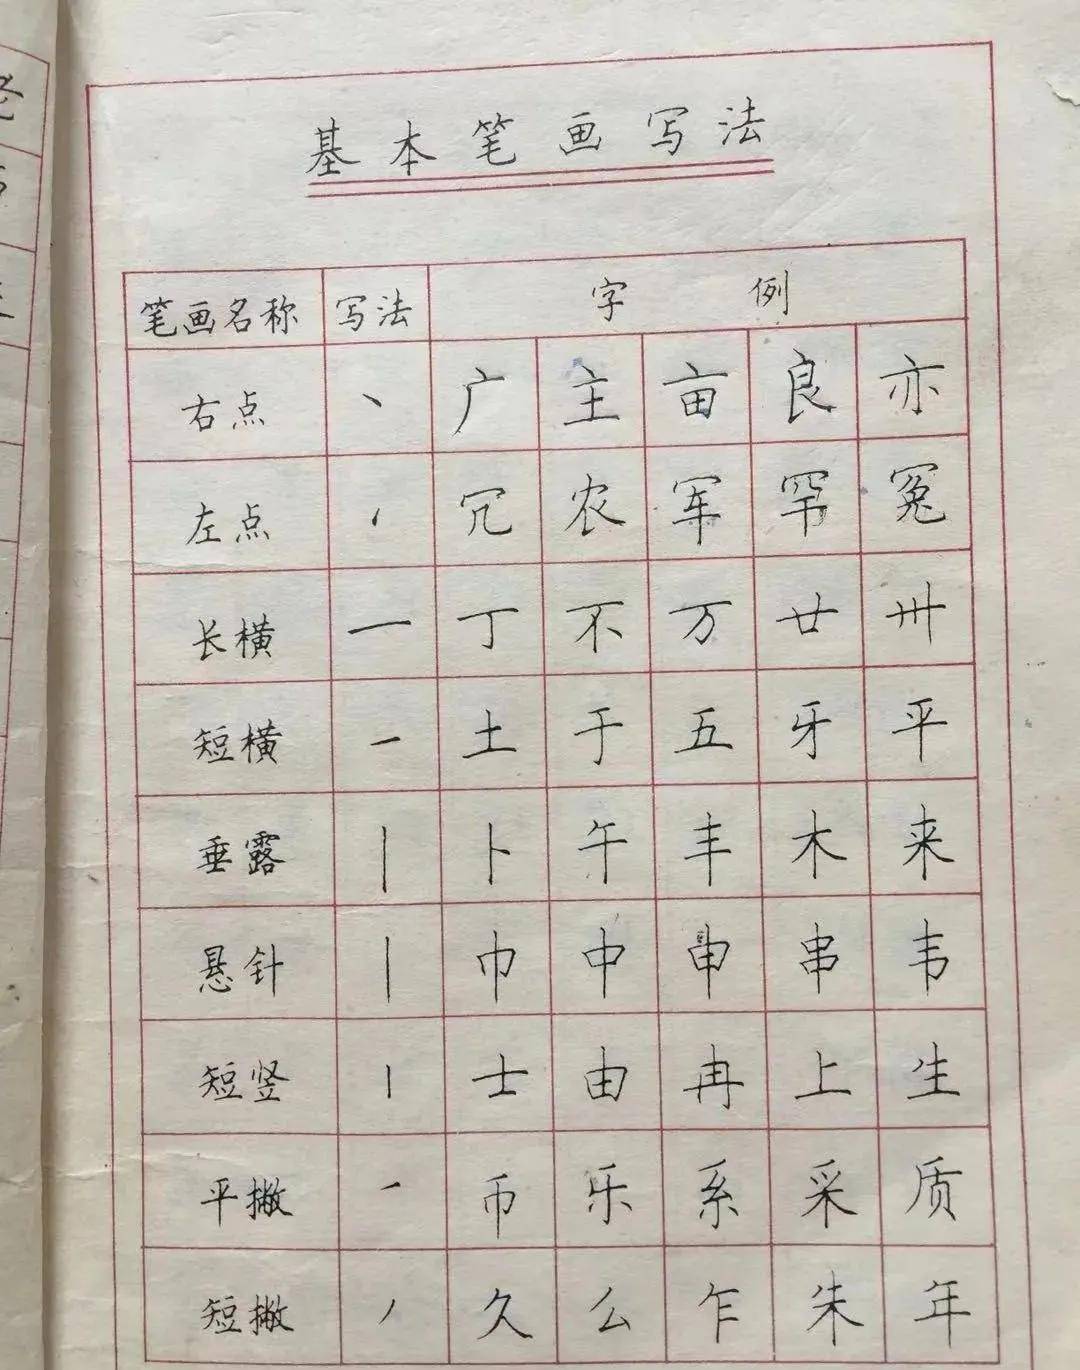 基本笔画写法
笔画名称 写法 字例
右点 丶 广 主 亩 良 亦
左点 冗 农 军 罕 冤
长横 一 丁 不 万 廿 卅
短横 一 土 于 五 牙 平
垂露 丨 卜 午 丰 木 来
悬针 丨 巾 中 申 串 韦
短竖 丨 士 由 冉 上 生
平撇 ㇀ 币 乐 系 采 质
短撇 丿 久 么 乍 朱 年